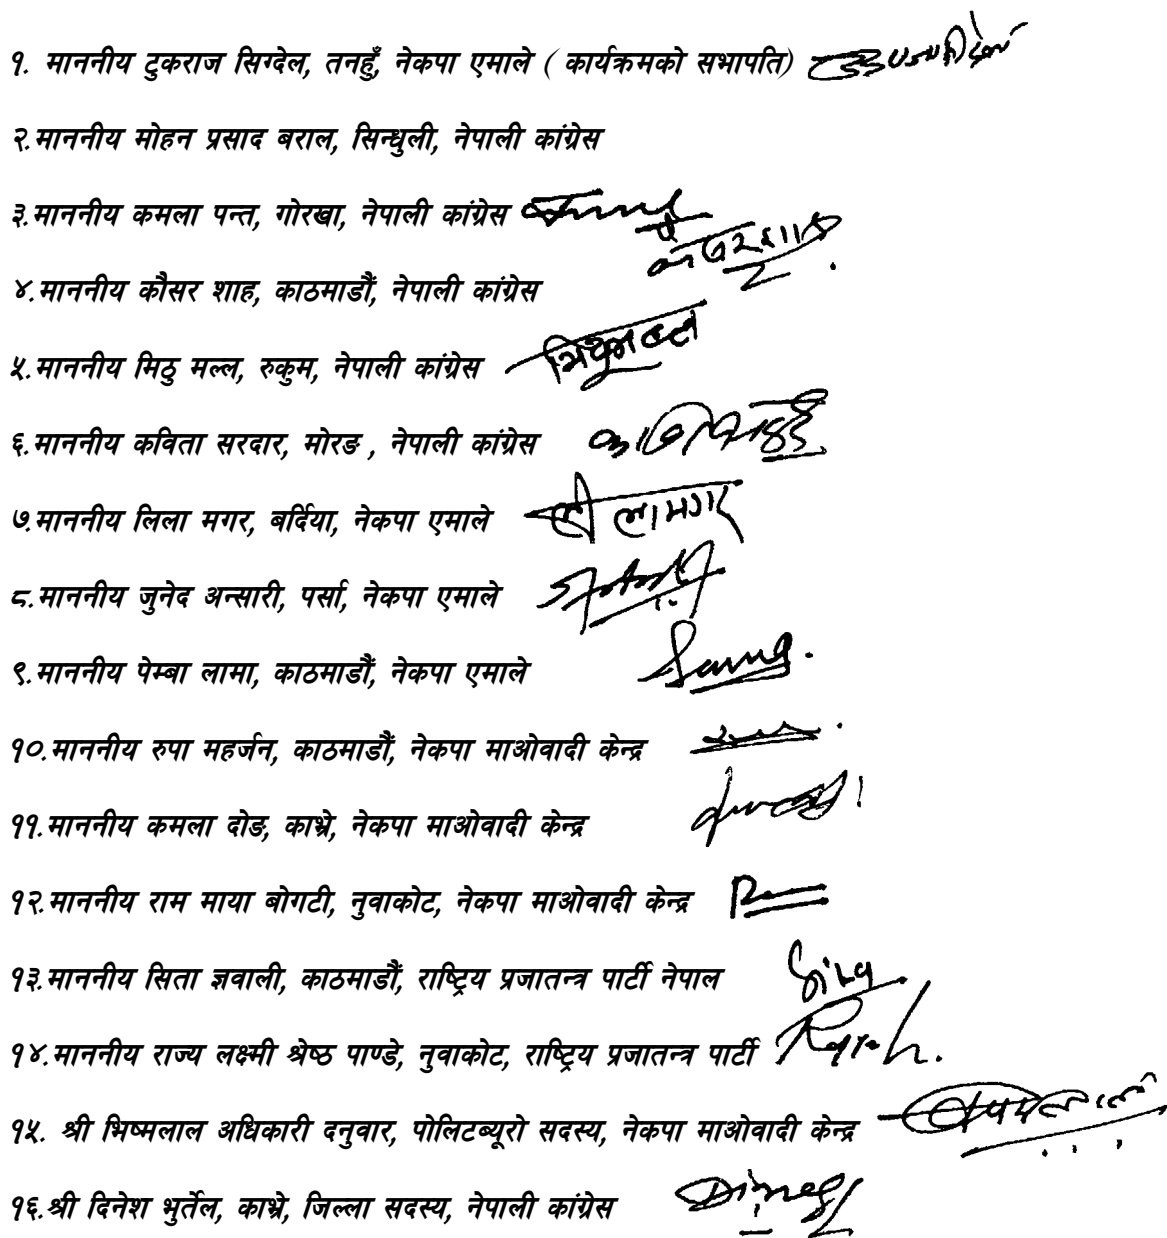 १. माननीय टुकराज सिग्देल, तनहुँ, नेकपा एमाले ( कार्यक्रमको सभापति)
२.माननीय मोहन प्रसाद बराल, सिन्धुली, नेपाली कांग्रेस
३.माननीय कमला पन्त, गोरखा, नेपाली कांग्रेस
४.माननीय कौसर शाह, काठमाडौं, नेपाली कांग्रेस
५.माननीय मिठु मल्ल, रुकुम, नेपाली कांग्रेस
६.माननीय कविता सरदार, मोरङ , नेपाली कांग्रेस
७.माननीय लिला मगर, बर्दिया, नेकपा एमाले ली लामगर
८.माननीय जुनेद अन्सारी, पर्सा, नेकपा एमाले
९.माननीय पेम्बा लामा, काठमाडौं, नेकपा एमाले
१०.माननीय रुपा महर्जन, काठमाडौं, नेकपा माओवादी केन्द्र
११.माननीय कमला दोङ, काभ्रे, नेकपा माओवादी केन्द्र
१२.माननीय राम माया बोगटी, नुवाकोट, नेकपा माओवादी केन्द्र
१३.माननीय सिता ज्ञवाली, काठमाडौं, राष्ट्रिय प्रजातन्त्र पार्टी नेपाल
१४.माननीय राज्य लक्ष्मी श्रेष्ठ पाण्डे, नुवाकोट, राष्ट्रिय प्रजातन्त्र पार्टी
१५. श्री भिष्मलाल अधिकारी दनुवार, पोलिटब्यूरो सदस्य, नेकपा माओवादी केन्द्र
१६.श्री दिनेश भुर्तेल, काभ्रे, जिल्ला सदस्य, नेपाली कांग्रेस